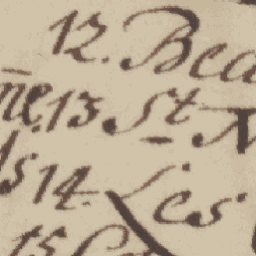 12. Bea
ne. 13. St. N
ls 14. Les
15